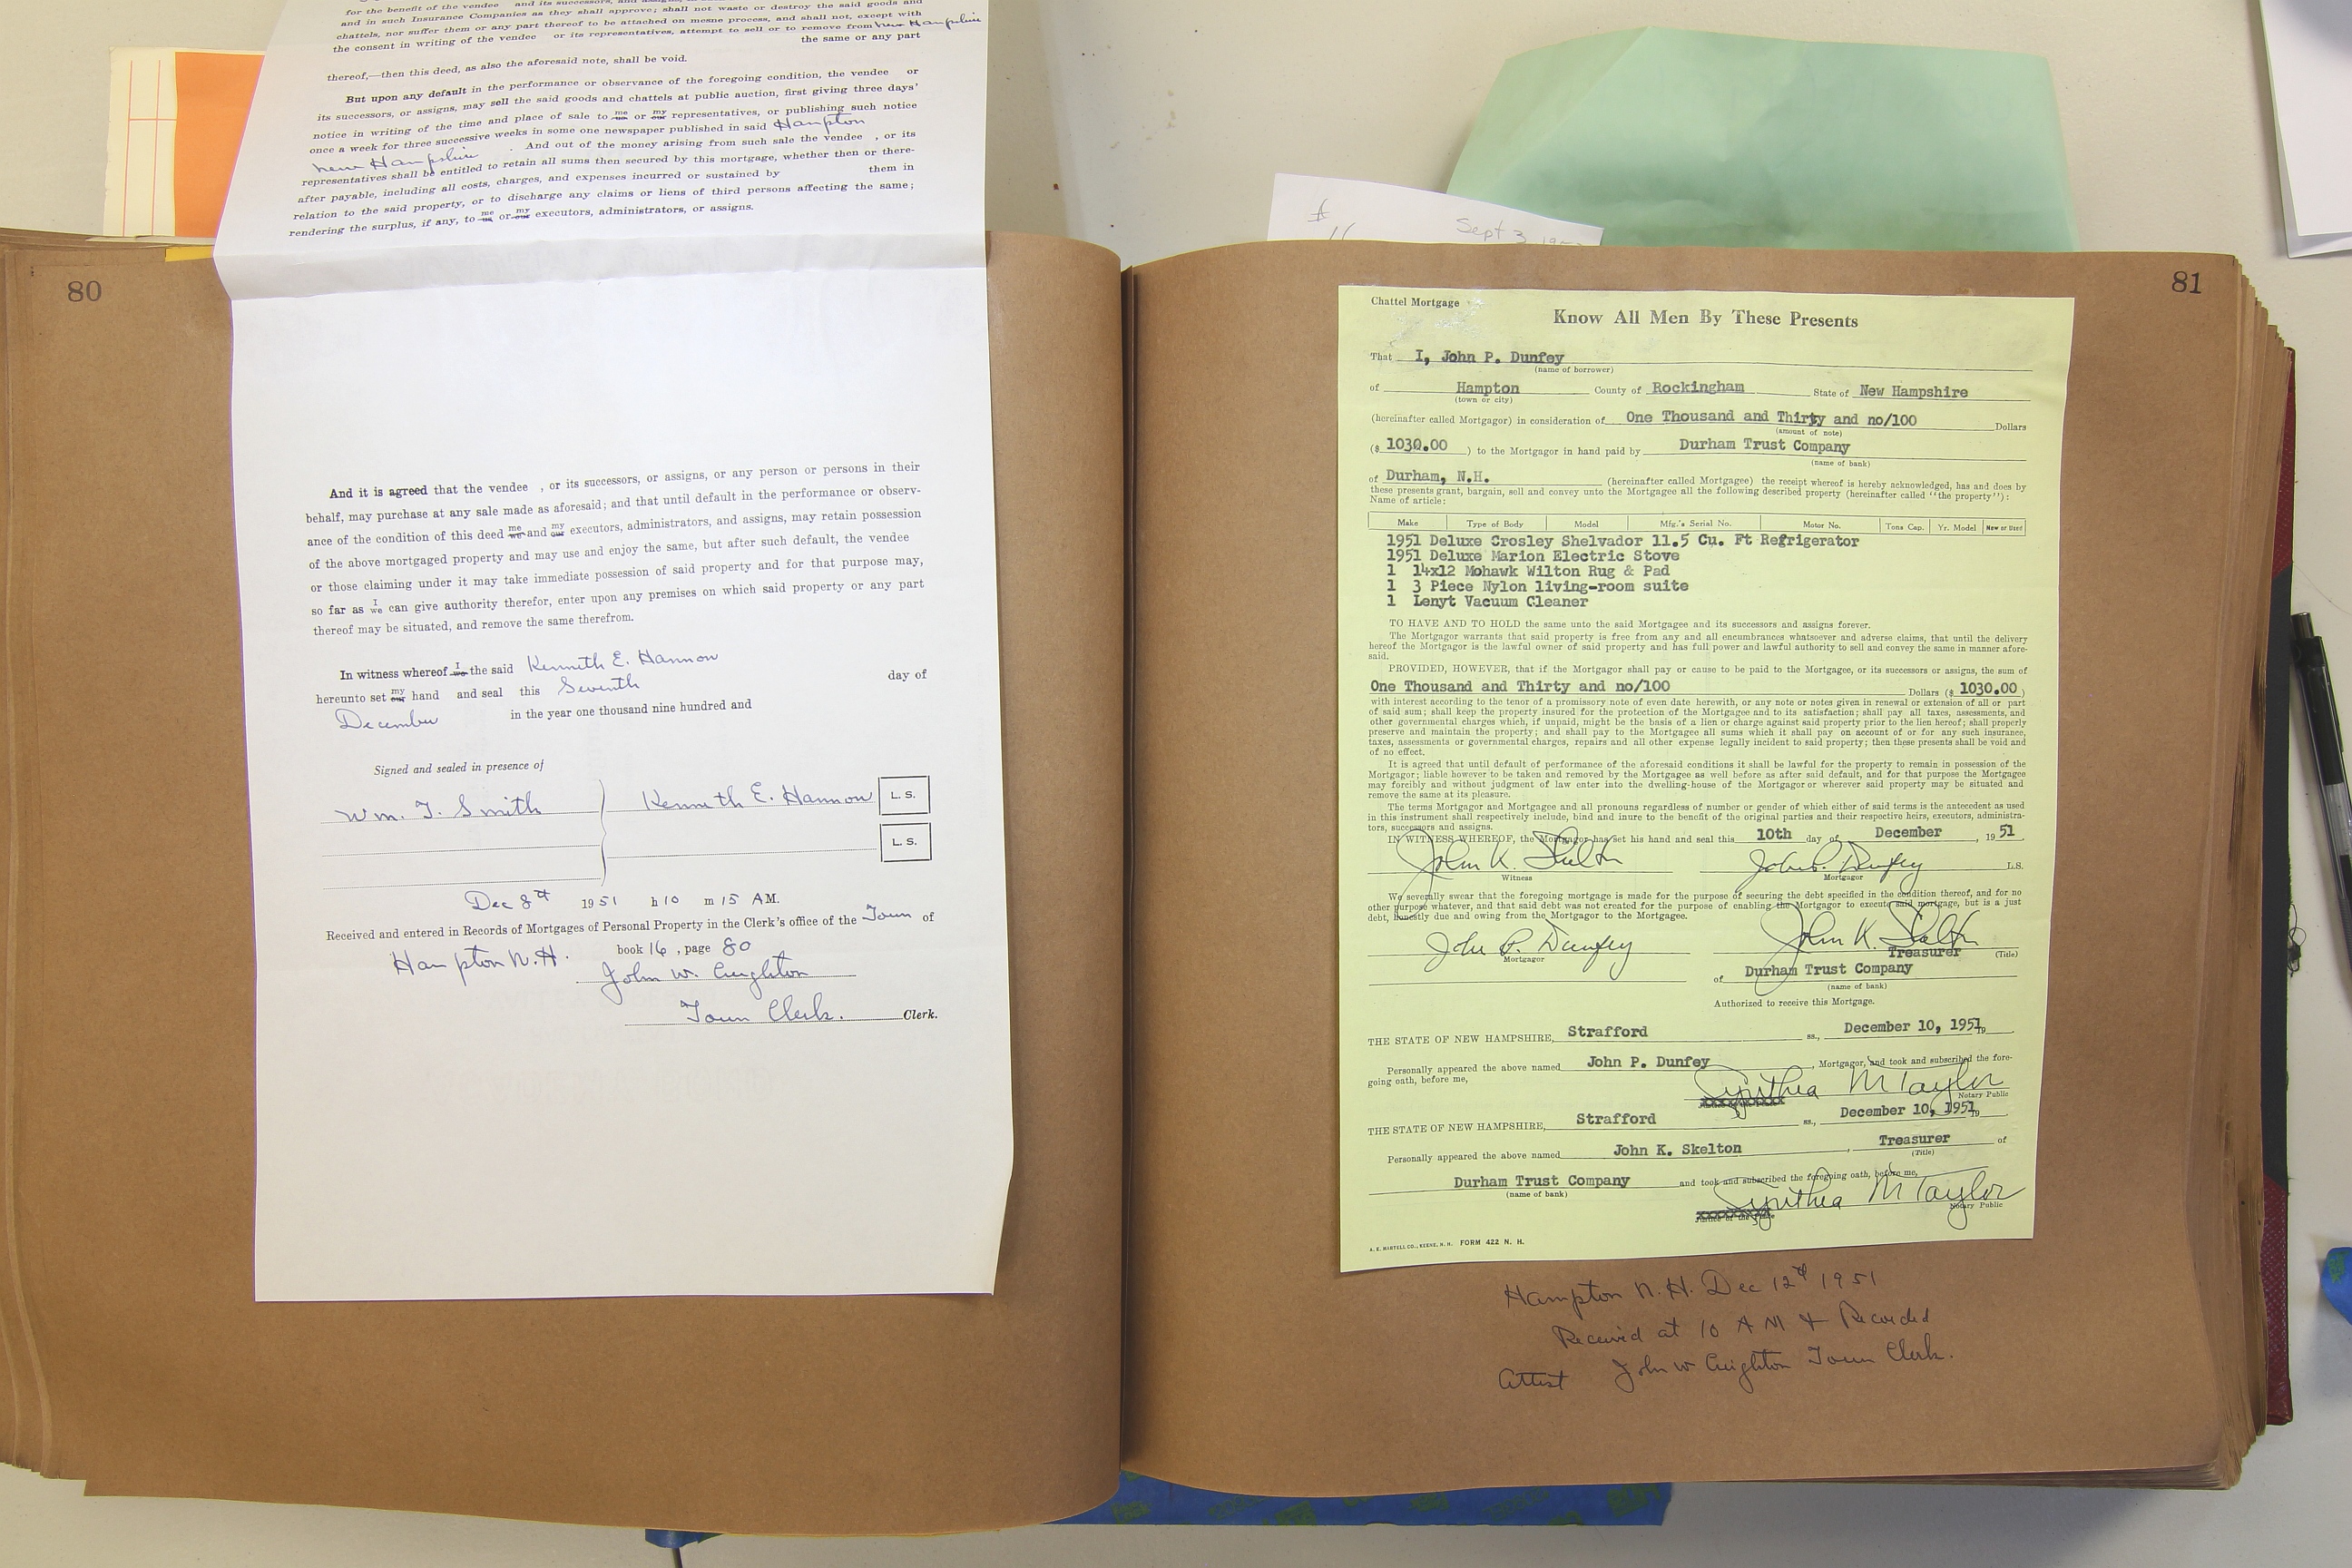 80
and in such Insurance Companies as they shall approve; shall not waste or destroy the said goods and
chattels, nor suffer them or any part thereof to be attached on mesne process, and shall not, except with
the consent in writing of the vendee or its representatives, attempt to sell or to remove from New Hampshire
the same or any part
thereof,—then this deed, as also the aforesaid note, shall be void.
But upon any default in the performance or observance of the foregoing condition, the vendee or
its successors, or assigns, may sell the said goods and chattels at public auction, first giving three days'
notice in writing of the time and place of sale to me or my representatives, or publishing such notice
once a week for three successive weeks in some one newspaper published in said Hampton
New Hampshire . And out of the money arising from such sale the vendee , or its
representatives shall be entitled to retain all sums then secured by this mortgage, whether then or there-
after payable, including all costs, charges, and expenses incurred or sustained by them in
relation to the said property, or to discharge any claims or liens of third persons affecting the same;
rendering the surplus, if any, to me us or my our executors, administrators, or assigns.
And it is agreed that the vendee , or its successors, or assigns, or any person or persons in their
behalf, may purchase at any sale made as aforesaid; and that until default in the performance or observ-
ance of the condition of this deed me we and my our executors, administrators, and assigns, may retain possession
of the above mortgaged property and may use and enjoy the same, but after such default, the vendee
or those claiming under it may take immediate possession of said property and for that purpose may,
so far as I we can give authority therefor, enter upon any premises on which said property or any part
thereof may be situated, and remove the same therefrom.
In witness whereof I we the said Kenneth E. Hannon
hereunto set my our hand and seal this Seventh day of
December in the year one thousand nine hundred and
Signed and sealed in presence of
Wm. T. Smith Kenneth E. Hannon L. S.
L. S.
Dec 8th 1951 h 10 m 15 AM.
Received and entered in Records of Mortgages of Personal Property in the Clerk's office of the Town of
Hampton N.H. book 16 , page 80
John W. Creighton
Town Clerk. Clerk.
Sept 3
81
Chattel Mortgage
Know All Men By These Presents
That I, John P. Dunfey
(name of borrower)
of Hampton County of Rockingham State of New Hampshire
(town or city)
(hereinafter called Mortgagor) in consideration of One Thousand and Thirty and no/100 Dollars
(amount of note)
($ 1030.00 ) to the Mortgagor in hand paid by Durham Trust Company
(name of bank)
of Durham, N.H. (hereinafter called Mortgagee) the receipt whereof is hereby acknowledged, has and does by
these presents grant, bargain, sell and convey unto the Mortgagee all the following described property (hereinafter called "the property"):
Name of article:
Make Type of Body Model Mfg.'s Serial No. Motor No. Tons Cap. Yr. Model New or Used
1951 Deluxe Crosley Shelvador 11.5 Cu. Ft Refrigerator
1951 Deluxe Marion Electric Stove
1 14x12 Mohawk Wilton Rug & Pad
1 3 Piece Nylon living-room suite
1 Lenyt Vacuum Cleaner
TO HAVE AND TO HOLD the same unto the said Mortgagee and its successors and assigns forever.
The Mortgagor warrants that said property is free from any and all encumbrances whatsoever and adverse claims, that until the delivery
hereof the Mortgagor is the lawful owner of said property and has full power and lawful authority to sell and convey the same in manner afore-
said.
PROVIDED, HOWEVER, that if the Mortgagor shall pay or cause to be paid to the Mortgagee, or its successors or assigns, the sum of
One Thousand and Thirty and no/100 Dollars ($ 1030.00 )
with interest according to the tenor of a promissory note of even date herewith, or any note or notes given in renewal or extension of all or part
of said sum; shall keep the property insured for the protection of the Mortgagee and to its satisfaction; shall pay all taxes, assessments, and
other governmental charges which, if unpaid, might be the basis of a lien or charge against said property prior to the lien hereof; shall properly
preserve and maintain the property; and shall pay to the Mortgagee all sums which it shall pay on account of or for any such insurance,
taxes, assessments or governmental charges, repairs and all other expense legally incident to said property; then these presents shall be void and
of no effect.
It is agreed that until default of performance of the aforesaid conditions it shall be lawful for the property to remain in possession of the
Mortgagor; liable however to be taken and removed by the Mortgagee as well before as after said default, and for that purpose the Mortgagee
may forcibly and without judgment of law enter into the dwelling-house of the Mortgagor or wherever said property may be situated and
remove the same at its pleasure.
The terms Mortgagor and Mortgagee and all pronouns regardless of number or gender of which either of said terms is the antecedent as used
in this instrument shall respectively include, bind and inure to the benefit of the original parties and their respective heirs, executors, administra-
tors, successors and assigns.
IN WITNESS WHEREOF, the Mortgagor has set his hand and seal this 10th day of December , 19 51
John K. Skelton John P Dunfey L.S.
Witness Mortgagor
We severally swear that the foregoing mortgage is made for the purpose of securing the debt specified in the condition thereof, and for no
other purpose whatever, and that said debt was not created for the purpose of enabling the Mortgagor to execute said mortgage, but is a just
debt, honestly due and owing from the Mortgagor to the Mortgagee.
John P. Dunfey John K. Skelton
Mortgagor Treasurer (Title)
of Durham Trust Company
(name of bank)
Authorized to receive this Mortgage.
THE STATE OF NEW HAMPSHIRE, Strafford ss., December 10, 1951 19
Personally appeared the above named John P. Dunfey , Mortgagor, and took and subscribed the fore-
going oath, before me,
Cynthia M Taylor
Notary Public
THE STATE OF NEW HAMPSHIRE, Strafford ss., December 10, 1951 19
Personally appeared the above named John K. Skelton , Treasurer of
(Title)
Durham Trust Company and took and subscribed the foregoing oath, before me,
(name of bank)
Cynthia M Taylor
Notary Public
A. E. MARTELL CO., KEENE, N. H. FORM 422 N. H.
Hampton N.H. Dec 12th 1951
Received at 10 A M & Recorded
Attest John W Creighton Town Clerk.